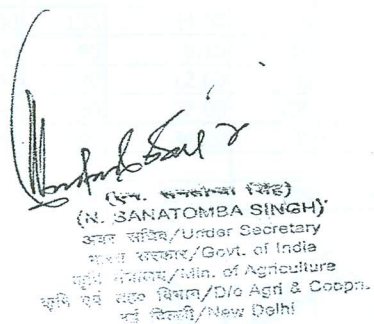 (एन. सनातोम्बा सिंह)
(N. SANATOMBA SINGH)
अवर सचिव/Under Secretary
भारत सरकार/Govt. of India
कृषि मंत्रालय/Min. of Agriculture
कृषि एवं सह० विभाग/D/o Agri & Coopn.
नई दिल्ली/New Delhi